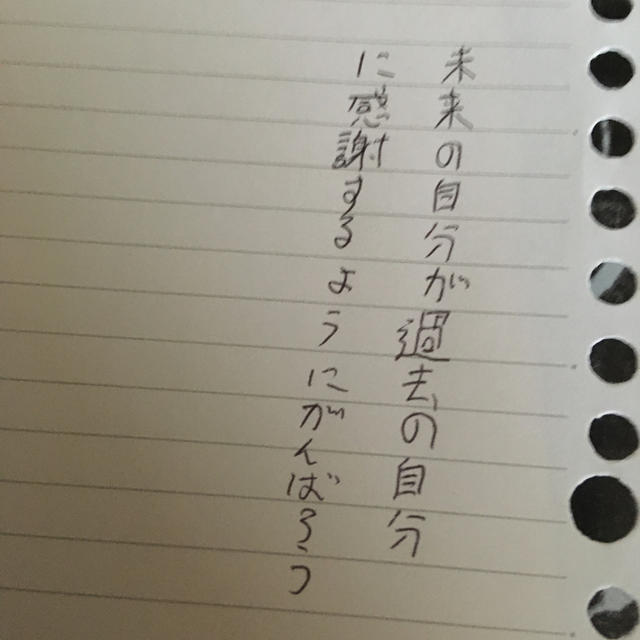 未来の自分が過去の自分
に感謝するようにがんばろう